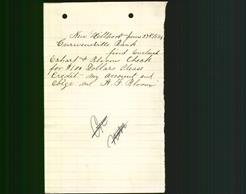 New Millport June 23rd 1884
Curwensville Bank
find Enclosed
Erhart & Bloom Check
for $100 Dollars Please
Credit my account and
Oblige me H. F. Bloom